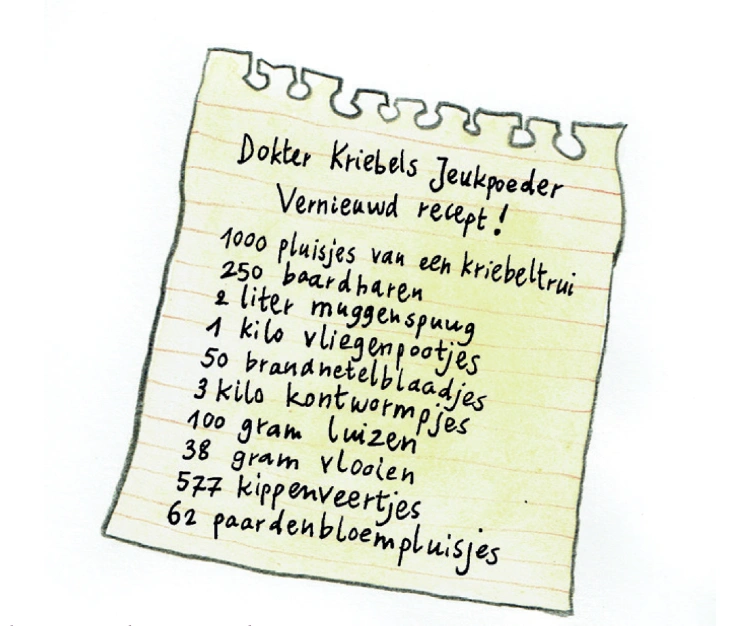 Dokter Kriebels Jeukpoeder
Vernieuwd recept!
1000 pluisjes van een kriebeltrui
250 baardharen
2 liter muggenspuug
1 kilo vliegenpootjes
50 brandnetelblaadjes
3 kilo kontwormpjes
100 gram luizen
38 gram vlooien
577 kippenveertjes
62 paardenbloempluisjes